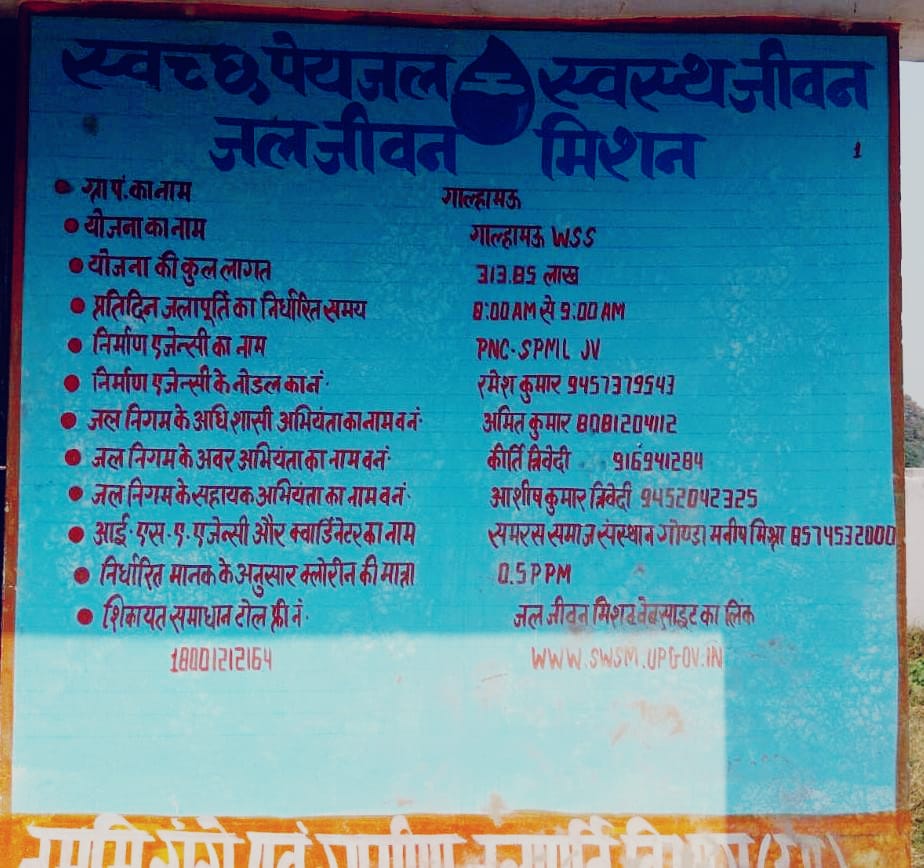 स्वच्छ पेयजल स्वस्थ जीवन
जल जीवन मिशन
1
ग्रा पं. का नाम गाल्हामऊ
योजना का नाम गाल्हामऊ WSS
योजना की कुल लागत 313.85 लाख
प्रतिदिन जलापूर्ति का निर्धारित समय 8:00 AM से 9:00 AM
निर्माण एजेन्सी का नाम PNC-SPML JV
निर्माण एजेन्सी के नोडल का नं. रमेश कुमार 9457379543
जल निगम के अधिशासी अभियंता का नाम व नं. अमित कुमार 808120412
जल निगम के अवर अभियंता का नाम व नं. कीर्ति त्रिवेदी 916941284
जल निगम के सहायक अभियंता का नाम व नं. आशीष कुमार त्रिवेदी 9452042325
आई.एस.ए. एजेन्सी और क्वार्डिनेटर का नाम समरस समाज संस्थान गोण्डा मनीष मिश्रा 8574532000
निर्धारित मानक के अनुसार क्लोरीन की मात्रा 0.5 PPM
शिकायत समाधान टोल फ्री नं. जल जीवन मिशन वेबसाइट का लिंक
18001212164 WWW.SWSM.UPGOV.IN
नमामि गंगे एवं ग्रामीण